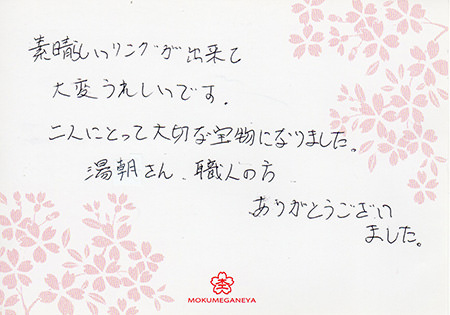 素晴しいリングが出来て
大変うれしいです。
二人にとって大切な宝物になりました。
湯朝さん、職人の方
ありがとうござい
ました。
MOKUMEGANEYA